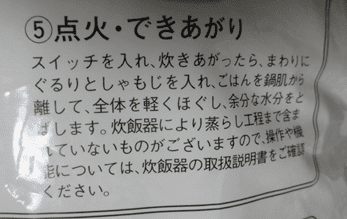 ⑤点火・できあがり
スイッチを入れ、炊きあがったら、まわりに
ぐるりとしゃもじを入れ、ごはんを鍋肌から
離して、全体を軽くほぐし、余分な水分をと
ばします。炊飯器により蒸らし工程まで含ま
れていないものがございますので、操作や機
能については、炊飯器の取扱説明書をご確認
ください。